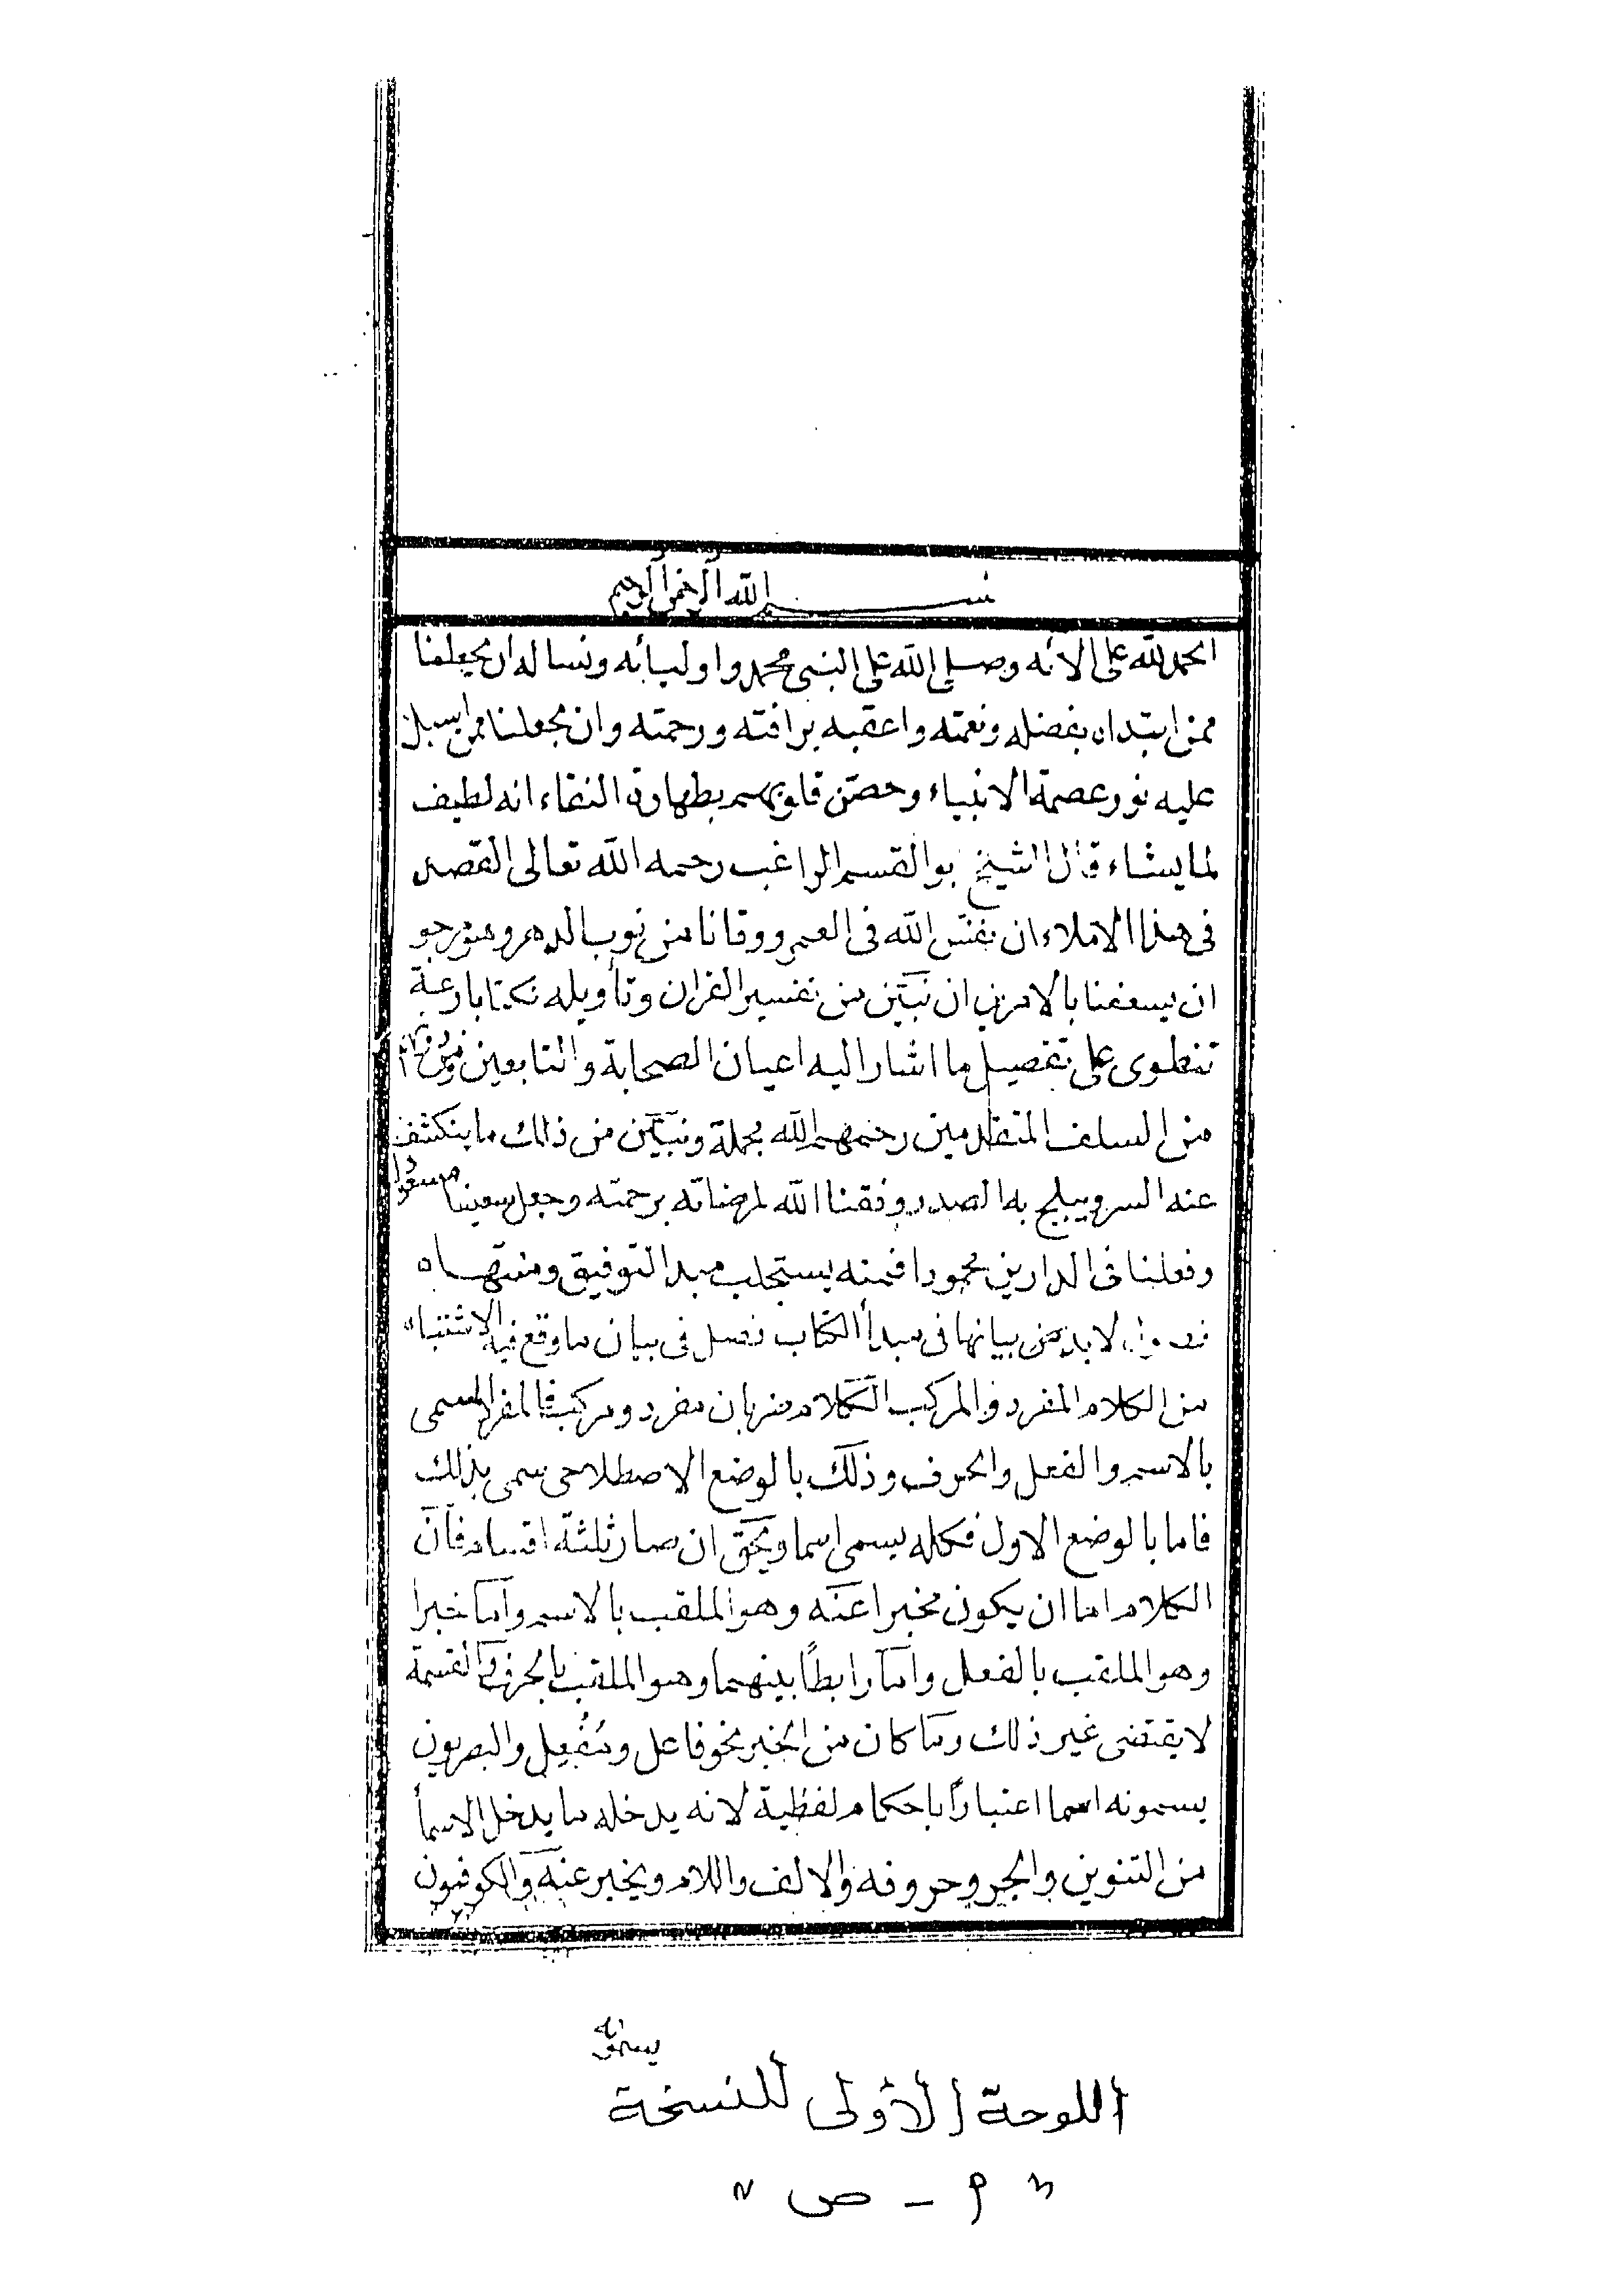 بسم الله الرحمن الرحيم
الحمد لله على الائه وصلى الله على النبي محمد واوليائه ونساله ان يجعلنا
ممن ابتداه بفضله ونعمته واعقبه برافته ورحمته وان يجعلنا ممن اسبل
عليه نور عصمة الانبياء وحصن قلوبهم بطهارة النقاء انه لطيف
لما يشاء قال الشيخ بو القسم الراغب رحمه الله تعالى القصد
في هذا الاملاء ان نفس الله في العمر ووقانا من نوب الدهر وهو مرجو
ان يسعفنا بالامرين ان نبين من تفسير القران وتأويله نكتا بارعة
تنطوى على تفصيل ما اشار اليه اعيان الصحابة والتابعين ومن دونهم
من السلف المتقدمين رحمهم الله مجملة ونبين من ذلك ما ينكشف
عنه السر ويبلج به الصدر وفقنا الله لمرضاته برحمته وجعل سعينا مسعودا
وفعلنا في الدارين محمودا فمنه يستجلب مبدا التوفيق ومنتهاه
فصول لا بد من بيانها في مبدأ الكتاب فصل في بيان ما وقع فيه الاشتباه
من الكلام المفرد والمركب الكلام ضربان مفرد ومركب فالمفرد المسمى
بالاسم والفعل والحرف وذلك بالوضع الاصطلاحي سمى بذلك
فاما بالوضع الاول فكله يسمى اسما ويحق ان صار ثلثة اقسام فان
الكلام اما ان يكون مخبرا عنه وهو الملقب بالاسم واما خبرا
وهو الملقب بالفعل واما رابطًا بينهما وهو الملقب بالحرف والقسمة
لا يقتضى غير ذلك وما كان من الخبر نحو فاعل ومُفْعِل والبصريون
يسمونه اسما اعتبارًا باحكام لفظية لانه يدخله ما يدخل الاسمأ
من التنوين والجر وحروفه والالف واللام ويخبر عنه والكوفيون
يسمونه
اللوحة الأولى للنسخة
" م - ص "